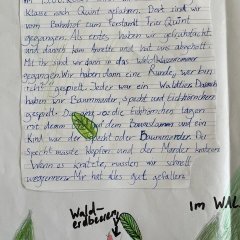 Klasse nach Quint gefahren. Dort sind wir
vom Bahnhof zum Forstamt Trier Quint
gegangen. Als erstes haben wir gefrühstückt
und danach kam Anette und hat uns abgeholt.
Mit ihr sind wir dann in das Waldklassenzimmer
gegangen. Wir haben dann eine Runde, wer bin
ich? gespielt. Jeder war ein Waldtier. Danach
haben wir Baummarder, Specht und Eichhörnchen
gespielt. Die Eichhörnchen lagen
auf dem Baumstamm und ein
Kind war der Specht oder Baummarder. Der
Specht musste klopfen und der Marder kratzen.
Wenn es kratzte, mussten wir schnell
wegrennen. Mir hat alles gut gefallen.
Wald-
erdbeeren
IM WAL